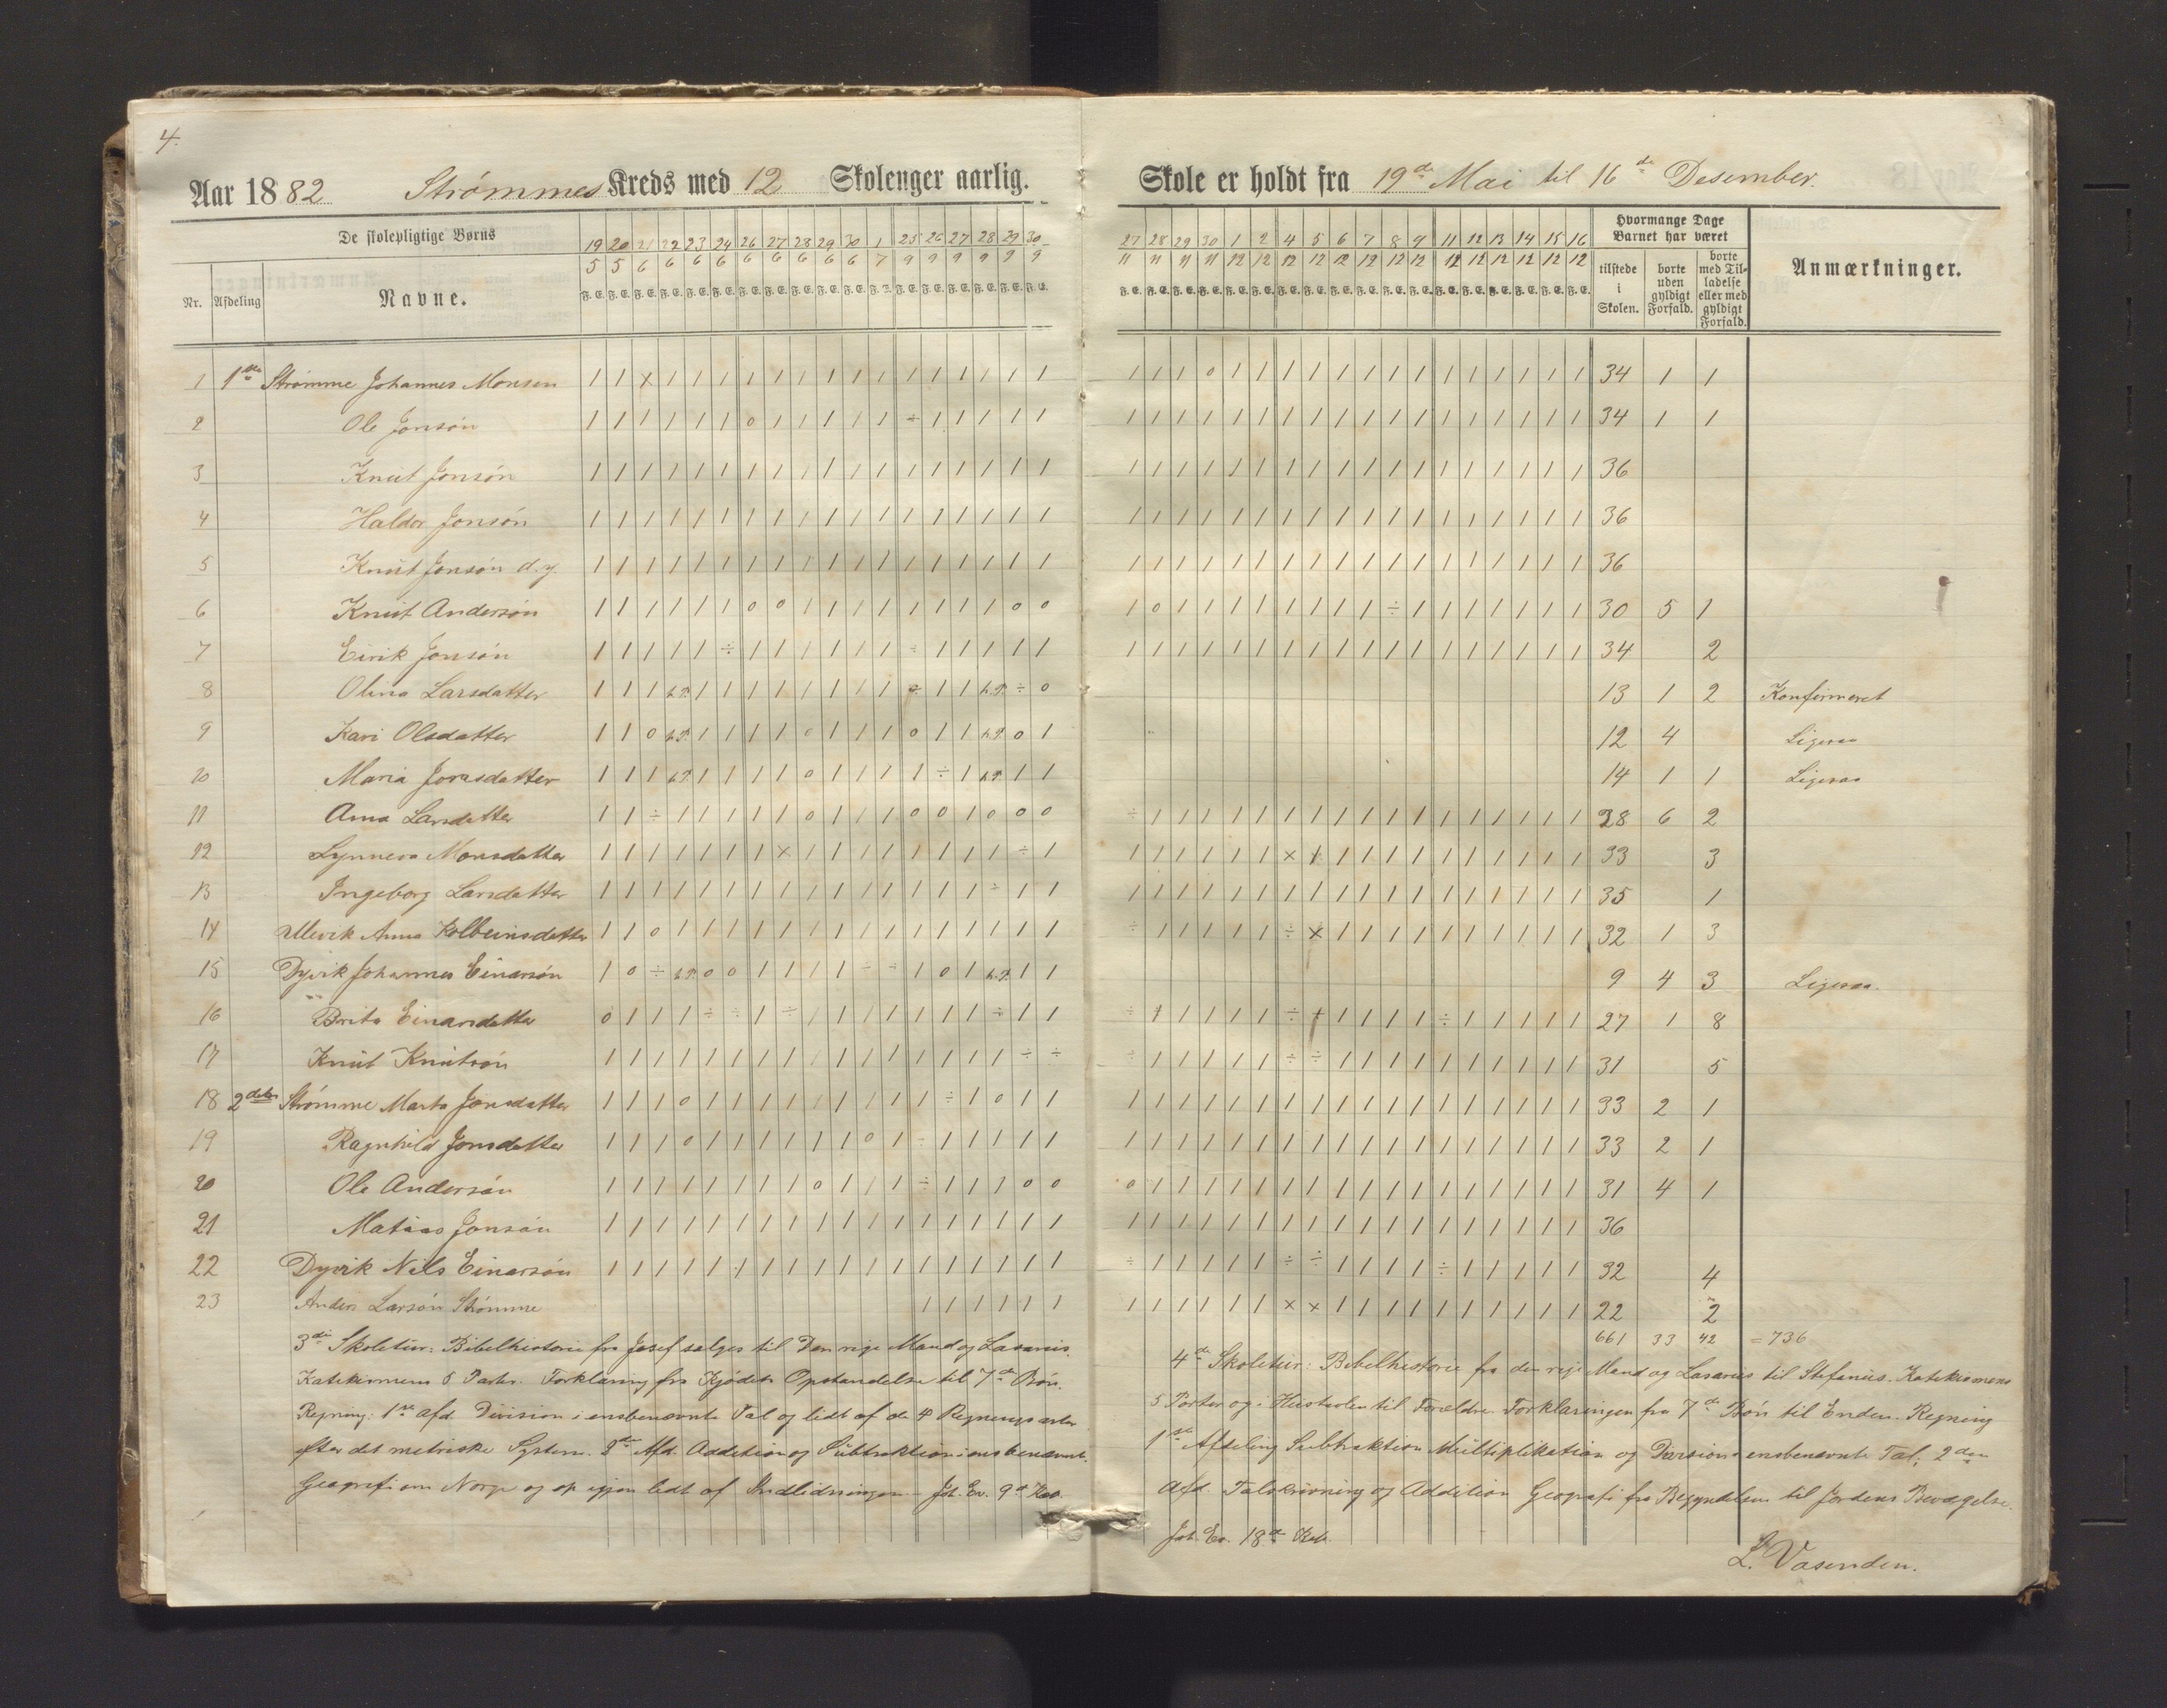 4.
Aar 1882 Strømmes Kreds med 12 Skoleuger aarlig.
De skolepligtige Børns
Nr. Afdeling Navne.
19 20 21 22 23 24 26 27 28 29 30 1 25 26 27 28 29 30
5 5 6 6 6 6 6 6 6 6 6 7 9 9 9 9 9 9
F. E. F. E. F. E. F. E. F. E. F. E. F. E. F. E. F. E. F. E. F. E. F. E. F. E. F. E. F. E. F. E. F. E. F. E.
1 1ste Strømme Johannes Monsen 1 1 x 1 1 1 1 1 1 1 1 1 1 1 1 1 1 1
2 Ole Jonsón 1 1 1 1 1 1 0 1 1 1 1 1 ÷ 1 1 1 1 1
3 Knut Jonsón 1 1 1 1 1 1 1 1 1 1 1 1 1 1 1 1 1 1
4 Haldor Jonsón 1 1 1 1 1 1 1 1 1 1 1 1 1 1 1 1 1 1
5 Knut Jonsón d. y. 1 1 1 1 1 1 1 1 1 1 1 1 1 1 1 1 1 1
6 Knut Andersón 1 1 1 1 1 1 0 0 1 1 1 1 1 1 1 1 0 0
7 Eirik Jonsón 1 1 1 1 1 ÷ 1 1 1 1 1 1 ÷ 1 1 1 1 1
8 Olina Larsdatter 1 1 1 h.P. 1 1 1 1 1 1 1 1 ÷ 1 1 h.P. ÷ 0
9 Kari Olsdatter 1 1 0 h.P. 1 1 1 1 0 1 1 1 0 1 1 h.P. 0 1
10 Maria Jonasdatter 1 1 1 h.P. 1 1 1 1 0 1 1 1 1 ÷ 1 h.P. 1 1
11 Anna Larsdatter 1 1 ÷ 1 1 1 1 1 0 1 1 1 0 0 1 0 0 0
12 Synneva Monsdatter 1 1 1 1 1 1 1 x 1 1 1 1 1 1 1 1 ÷ 1
13 Ingeborg Larsdatter 1 1 1 1 1 1 1 1 1 1 1 1 1 1 1 ÷ 1 1
14 Ullevik Anna Kolbeinsdatter 1 1 0 1 1 1 1 1 1 1 1 1 1 1 1 1 1 1
15 Dyvik Johannes Einarsón 1 0 ÷ h.P. 0 0 1 1 1 1 ÷ ÷ 1 0 1 h.P. 1 1
16 Brita Einarsdatter 0 1 1 1 ÷ ÷ 1 ÷ 1 1 1 1 1 1 1 ÷ 1 1
17 Knut Knutsón 1 1 1 1 1 1 1 1 1 1 1 1 1 1 1 1 ÷ ÷
18 2den Strømme Marta Jonsdatter 1 1 1 0 1 1 1 1 1 1 1 1 1 ÷ 1 0 1 1
19 Ragnhild Jonsdatter 1 1 1 0 1 1 1 1 1 1 0 1 ÷ 1 1 1 1 1
20 Ole Andersón 1 1 1 1 1 1 1 1 0 1 1 1 ÷ 1 1 1 0 0
21 Matias Jonsón 1 1 1 1 1 1 1 1 1 1 1 1 1 1 1 1 1 1
22 Dyvik Nils Einarsón 1 1 1 1 1 1 1 1 1 1 1 1 1 1 1 1 1 1
23 Anders Larsón Strømme 1 1 1 1 1 1
3die Skoletur: Bibelhistorie fra Josef sælges til Den rige Mand og Lasarus.
Katekismens 5 Parter. Forklaring fra Kjødets Opstandelse til 7de Bøn.
Regning: 1ste Afd. Division i ensbenævnte Tal og lidt af de 4 Regningsarter
efter det metriske System. 2den Afd. Addition og Subtraktion i ensbenævnt.
Geografi om Norge og op igjen lidt af Indledningen. Joh. Ev. 9de Kap.
Skole er holdt fra 19de Mai til 16de Desember.
27 28 29 30 1 2 4 5 6 7 8 9 11 12 13 14 15 16
11 11 11 11 12 12 12 12 12 12 12 12 12 12 12 12 12 12
F. E. F. E. F. E. F. E. F. E. F. E. F. E. F. E. F. E. F. E. F. E. F. E. F. E. F. E. F. E. F. E. F. E. F. E.
Hvormange Dage Barnet har været
tilstede i Skolen. borte uden gyldigt Forfald. borte med Tilladelse eller med gyldigt Forfald.
Anmærkninger.
1 1 1 0 1 1 1 1 1 1 1 1 1 1 1 1 1 1 34 1 1
1 1 1 1 1 1 1 1 1 1 1 1 1 1 1 1 1 1 34 1 1
1 1 1 1 1 1 1 1 1 1 1 1 1 1 1 1 1 1 36
1 1 1 1 1 1 1 1 1 1 1 1 1 1 1 1 1 1 36
1 1 1 1 1 1 1 1 1 1 1 1 1 1 1 1 1 1 36
1 0 1 1 1 1 1 1 1 1 ÷ 1 1 1 1 1 1 1 30 5 1
1 1 1 1 1 1 1 1 1 1 1 1 1 1 1 1 1 1 34 2
13 1 2 Konfirmeret
12 4 Ligesaa
14 1 1 Ligesaa
÷ 1 1 1 1 1 1 1 1 1 1 1 1 1 1 1 1 1 28 6 2
1 1 1 1 1 1 x x 1 1 1 1 1 1 1 1 1 1 33 3
1 1 1 1 1 1 1 1 1 1 1 1 1 1 1 1 1 1 35 1
÷ 1 1 1 1 1 ÷ x 1 1 1 1 1 1 1 1 1 1 32 1 3
9 4 3 Ligesaa.
÷ 1 1 1 1 1 ÷ ÷ 1 1 1 1 ÷ 1 1 1 1 1 27 1 8
÷ 1 1 1 1 1 ÷ ÷ 1 1 1 1 1 1 1 1 1 1 31 5
1 1 1 1 1 1 1 1 1 1 1 1 1 1 1 1 1 1 33 2 1
1 1 1 1 1 1 1 1 1 1 1 1 1 1 1 1 1 1 33 2 1
0 1 1 1 1 1 1 1 1 1 1 1 1 1 1 1 1 1 31 4 1
1 1 1 1 1 1 1 1 1 1 1 1 1 1 1 1 1 1 36
÷ 1 1 1 1 1 ÷ ÷ 1 1 1 1 ÷ 1 1 1 1 1 32 4
1 1 1 1 1 1 x x 1 1 1 1 1 1 1 1 1 1 22 2
661 33 42 = 736
4de Skoletur: Bibelhistorie fra den rige Mand og Lasarus til Stefanus. Katekismens
5 Parter og i Hustavlen til Forældre. Forklaringen fra 7de Bøn til Enden. Regning
1ste Afdeling Subtraktion Multiplikation og Division i ensbenævnte Tal; 2den
Afd. Talskrivning og Addition Geografi fra Begyndelsen til Jordens Bevægelse.
Joh. Ev. 18de Kap.
L. Vasenden.